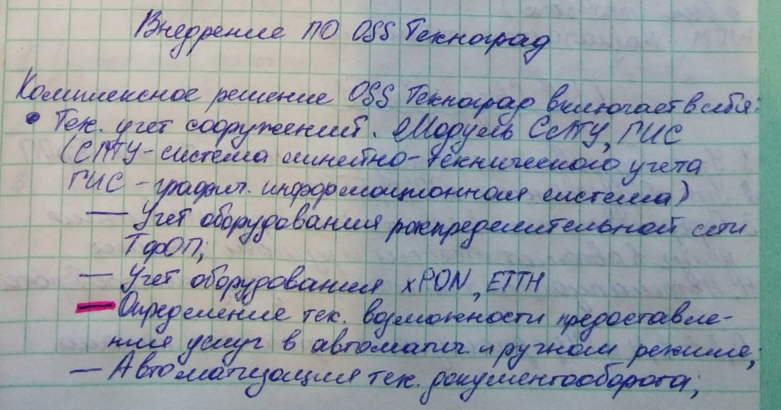 Внедрение ПО OSS Техноград
Комплексное решение OSS Техноград включает в себя:
• Тех. учет сооружений. Модуль СЛТУ, ГИС
(СЛТУ - система линейно-технического учета
ГИС - графич. информационная система)
— Учет оборудования распределительной сети
ТфОП;
— Учет оборудования xPON, ETTH
— Определение тех. возможности предоставле-
ния услуг в автоматич. и ручном режиме;
— Автоматизация тех. документооборота;